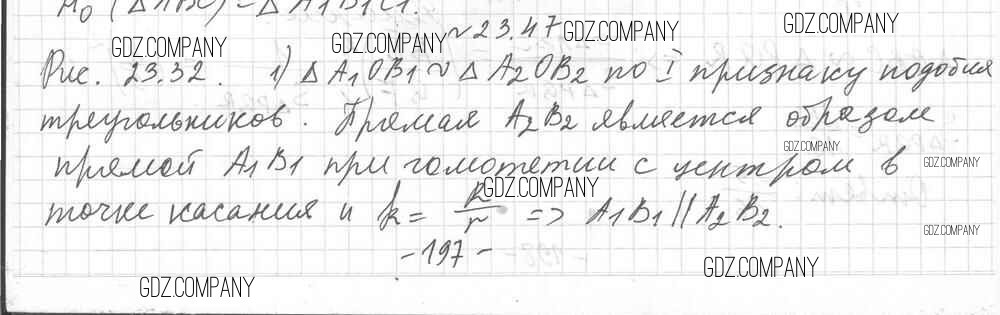 H₀ (△ABC) = △A1B1C1.
~23.47
Рис. 23.32. 1) △A1OB1 ~ △A2OB2 по I признаку подобия
треугольников. Прямая A2B2 является образом
прямой A1B1 при гомотетии с центром в
точке касания и k = R/r => A1B1 || A2B2.
-197-
GDZ.COMPANY
GDZ.COMPANY
GDZ.COMPANY
GDZ.COMPANY
GDZ.COMPANY
GDZ.COMPANY
GDZ.COMPANY
GDZ.COMPANY
GDZ.COMPANY
GDZ.COMPANY